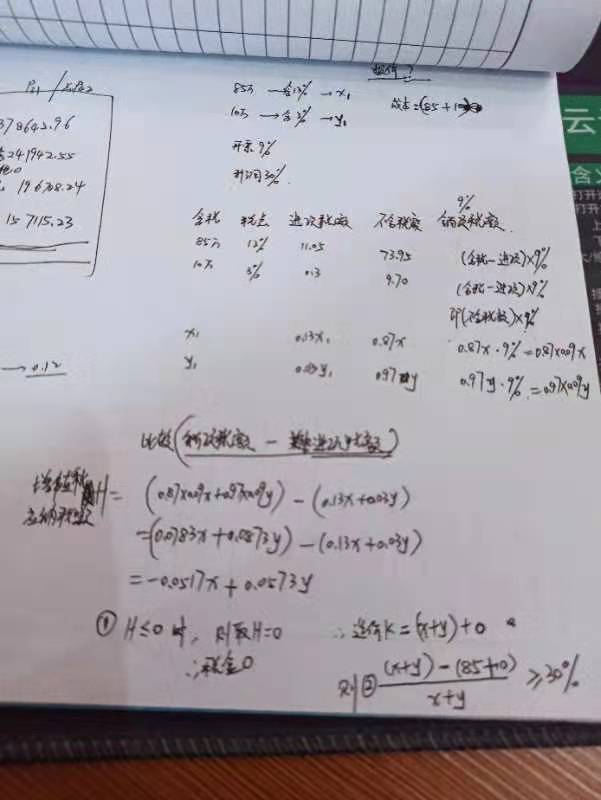 378643.96
241942.55
19.6708.24
157115.23
→0.12
85万 →含13% →x₁
10万 →含3% →y₁
成本=(85+10)
开票9%
利润30%
9%
含税 税点 进项税额 不含税额 销项税额
85万 13% 11.05 73.95 (含税-进项)×9%
10万 3% 0.3 9.70 (含税-进项)×9%
即(不含税额)×9%
x₁ 0.13x₁ 0.87x 0.87x·9%=0.87×0.09x
y₁ 0.03y₁ 0.97y 0.97y·9%=0.97×0.09y
比较(销项税额-进项税额)
增值税应纳税额H=(0.87×0.09x+0.97×0.09y)-(0.13x+0.03y)
=(0.0783x+0.0873y)-(0.13x+0.03y)
=-0.0517x+0.0573y
① H≤0时, 则取H=0 ∴造价K=(x+y)+0
∴税金0
则② (x+y)-(85+10)/x+y ≥30%
云
含义
打开
打开